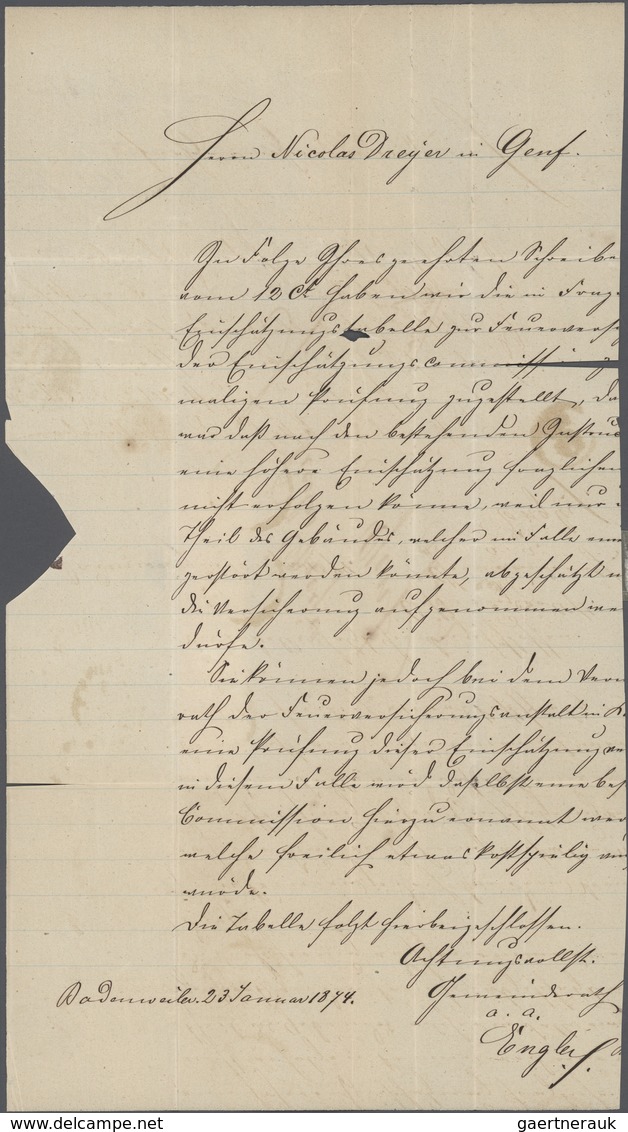 Herrn Nicolas Dreyer in Genf.
In Folge Ihres geehrten Schreibe
vom 12 Ct. haben wir die in Frag
Einschätzungstabelle zur Feuerversi
der Einschätzungscommission zu
maligen Prüfung zugestellt, da
war daß nach den bestehenden Instruc
eine höhere Einschätzung fraglichen
nicht erfolgen könne, weil nur
Theil des Gebäudes, welcher im Falle eine
zerstört werden könnte, abgeschätzt u
die Versicherung aufgenommen we
dürfe.
Sie können jedoch bei dem Verw
rath der Feuerversicherungsanstalt in K
eine Prüfung dieser Einschätzung ve
in diesem Falle wird daselbst eine bes
Commission hierzu ernannt wer
welche freilich etwas kostspielig
würde.
Die Tabelle folgt hierbeigeschlossen.
Achtungsvollst.
Badenweiler. 23 Januar 1874.
Gemeinderath
a. a.
Engler
www.delcampe.net
gaertnerauk